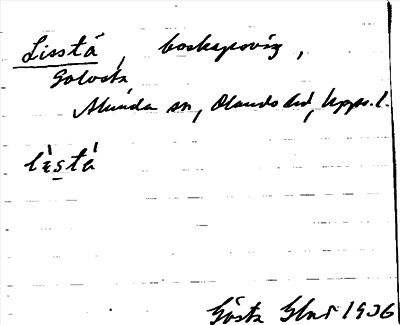 Lisstå, boskapsväg,
Golvsta
Alunda sn, Olands hd, Upps. l.
Gösta Elné 1936